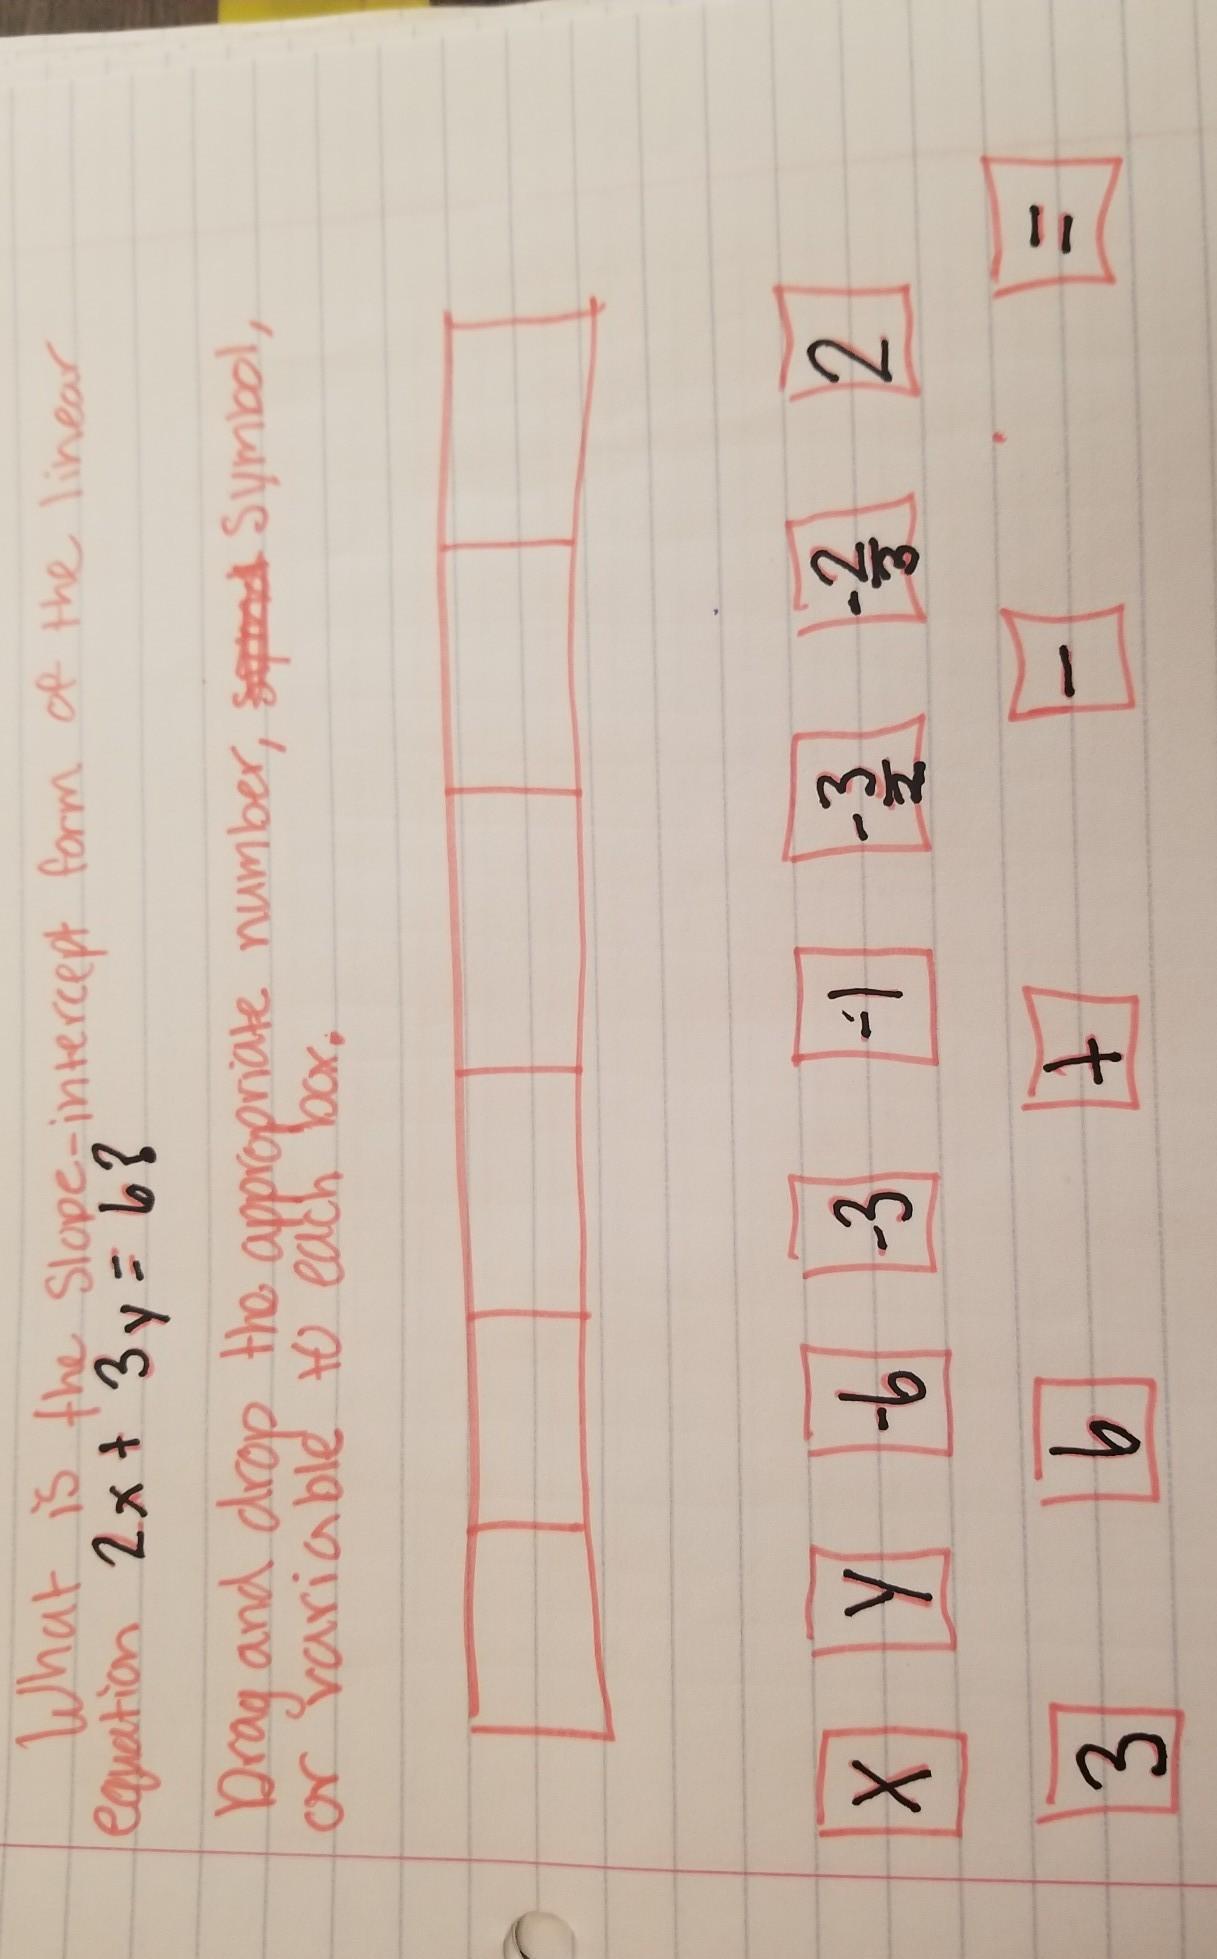 What is the slope-intercept form of the linear
equation 2x + 3y = 6?
Drag and drop the appropriate number, symbol,
or variable to each box.
x y -6 -3 -1 -3/2 -2/3 2
3 6 + - =